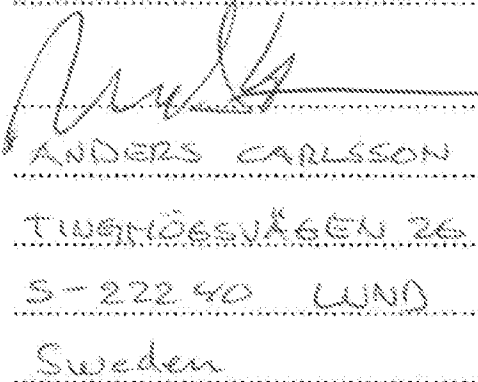 ANDERS CARLSSON
TINGHÖGSVÄGEN 26
S-222 40 LUND
Sweden